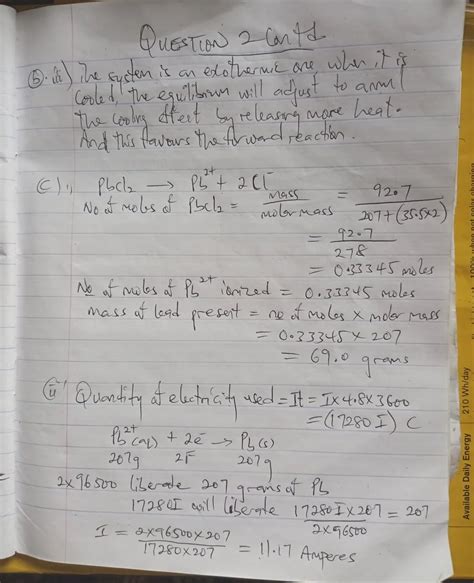 QUESTION 2 Contd
(b). iii) The system is an exothermic one when it is
cooled, the equilibrium will adjust to annul
the cooling effect by releasing more heat.
And this favours the forward reaction.
C) i, PbCl2 → Pb2+ + 2Cl-
No of moles of PbCl2 = mass / molar mass = 92.7 / 207+(35.5x2)
= 92.7 / 278
= 0.33345 moles
No of moles of Pb2+ ionized = 0.33345 moles
mass of lead present = no of moles x molar mass
= 0.33345 x 207
= 69.0 grams
ii) Quantity of electricity used = It = I x 4.8 x 3600
= (17280 I) C
Pb2+(aq) + 2e- → Pb(s)
207g 2F 207g
2x96500 liberate 207 grams of Pb
17280I will liberate 17280I x 207 / 2x96500 = 207
I = 2x96500x207 / 17280x207 = 11.17 Amperes
Available Daily Energy 210 Wh/day